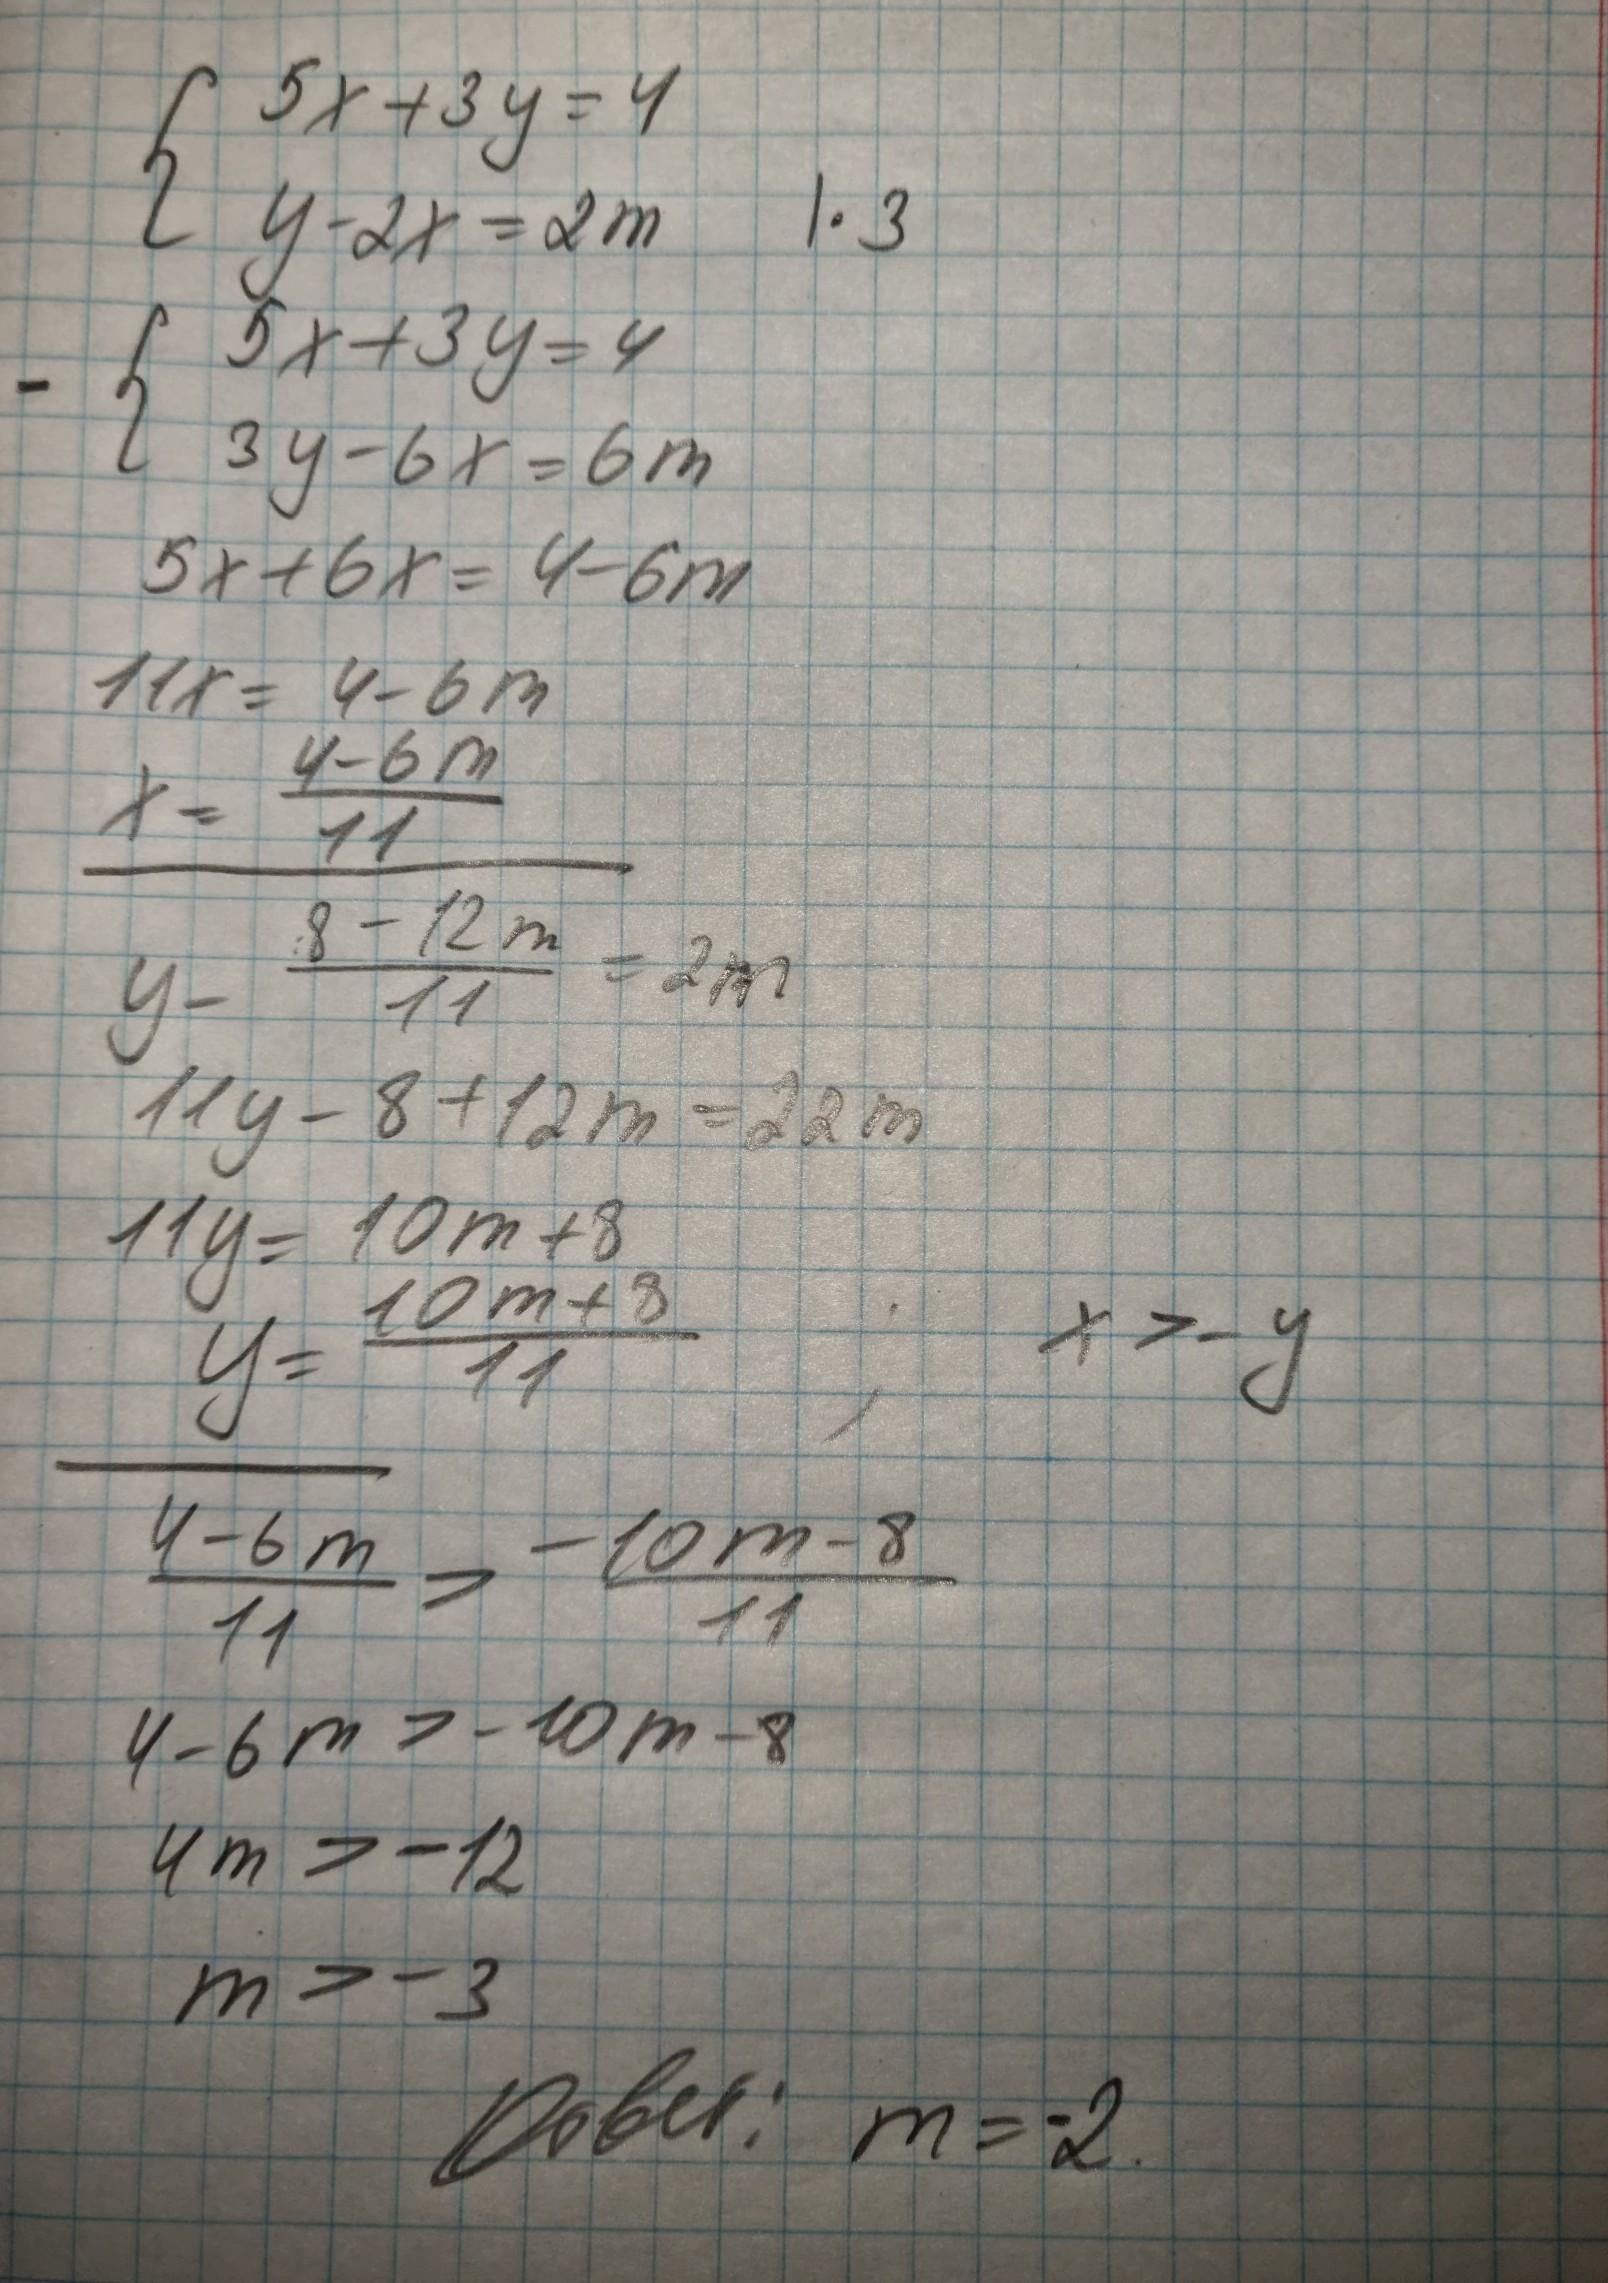 { 5x+3y=4
y-2x=2m |·3
- { 5x+3y=4
3y-6x=6m
5x+6x=4-6m
11x=4-6m
x=\frac{4-6m}{11}
y-\frac{8-12m}{11}=2m
11y-8+12m=22m
11y=10m+8
y=\frac{10m+8}{11} ; x>-y
\frac{4-6m}{11}>\frac{-10m-8}{11}
4-6m>-10m-8
4m>-12
m>-3
m=-2.